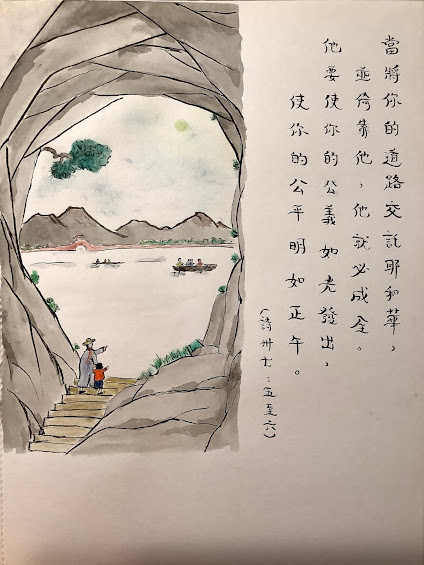 當將你的道路交託耶和華，
並倚靠他，他就必成全。
他要使你的公義如光發出，
使你的公平明如正午。
（詩卅七：五至六）